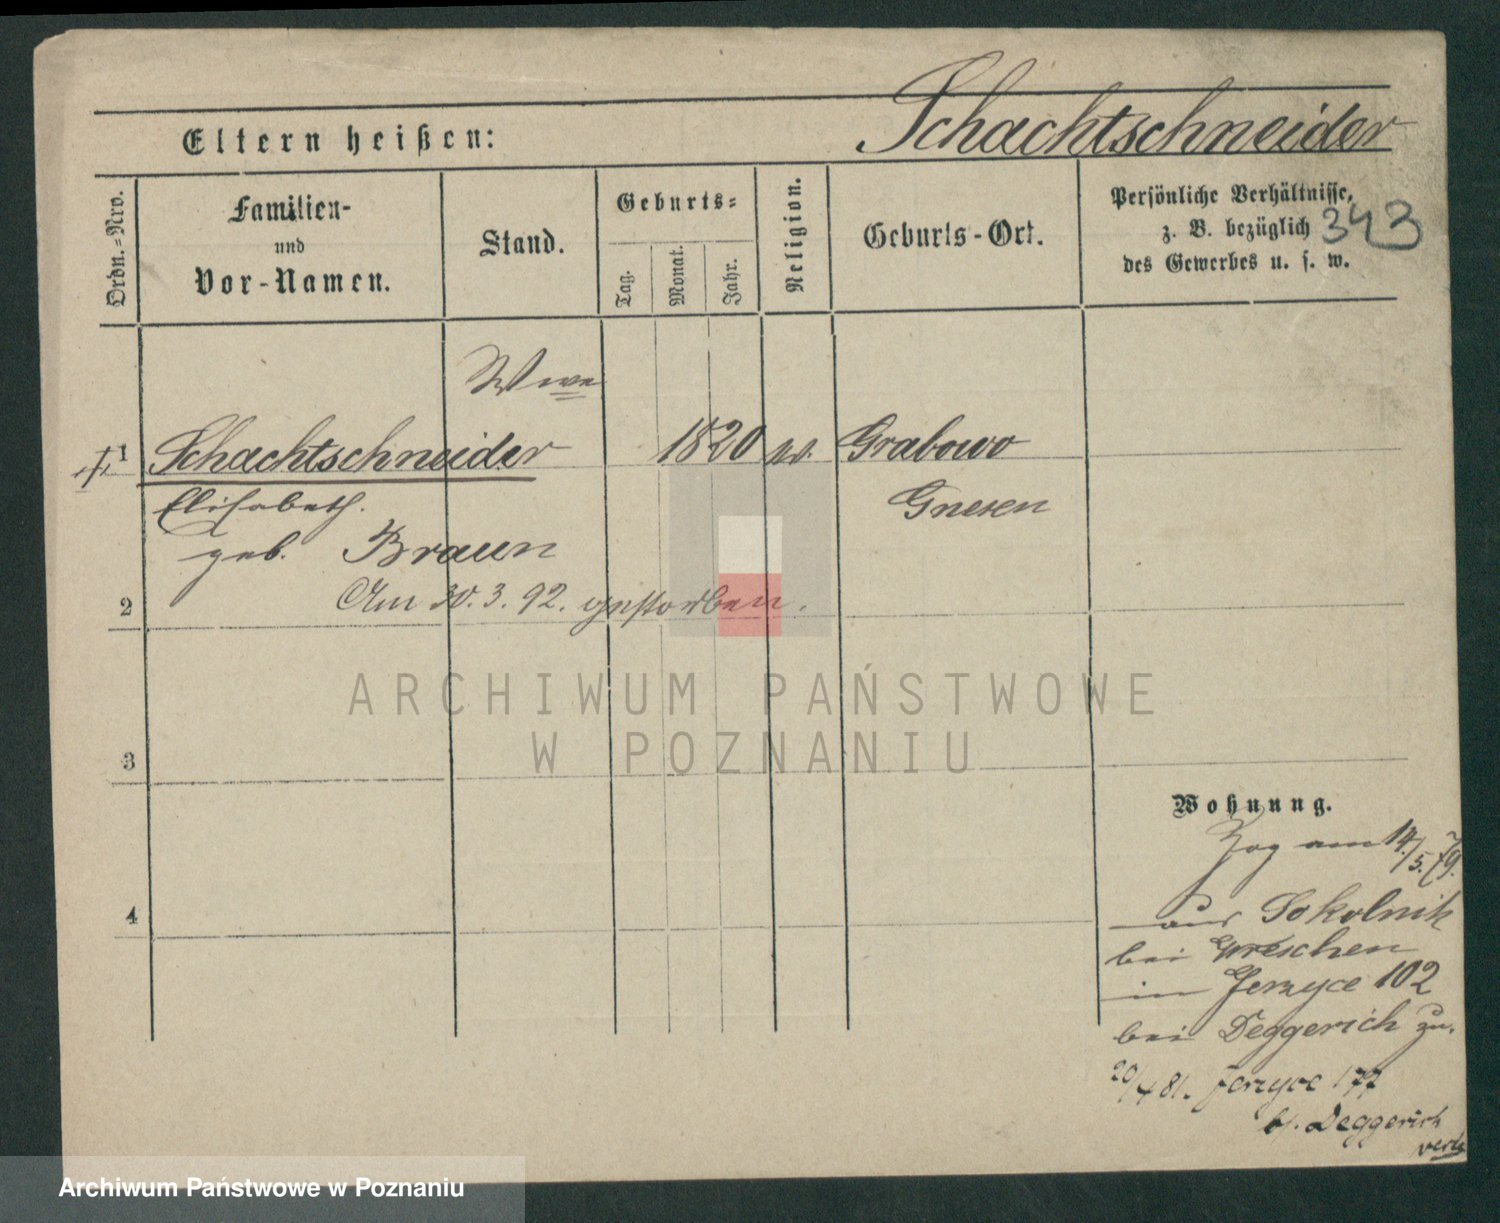 Schachtschneider
Eltern heißen:
Ordn.-Nro.
Familien-
und
Vor-Namen.
Stand.
Geburts-
Tag.
Monat.
Jahr.
Religion.
Geburts-Ort.
Persönliche Verhältnisse,
z. B. bezüglich
des Gewerbes u. s. w.
343
Wwe
1 Schachtschneider 1820 Grabowo
Elisabeth. Gnesen
geb. Braun
Am 30. 3. 92. gestorben.
2
3
4
ARCHIWUM PAŃSTWOWE
W POZNANIU
Wohnung.
Zog am 14/5. 79.
aus Sokolnik
bei Wreschen
in Jerzyce 102
bei Deggerich zu.
20/4 81. Jerzyce 177
b/. Deggerich
Archiwum Państwowe w Poznaniu